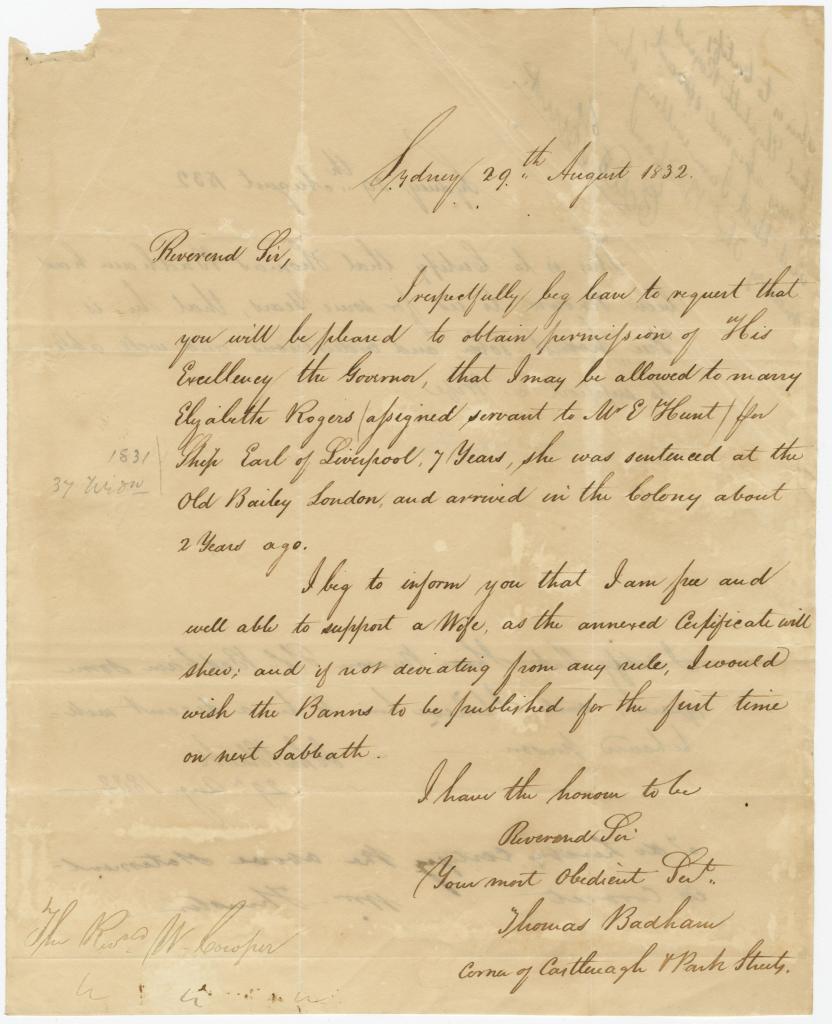 Sydney 29.th August 1832.
Reverend Sir,
I respectfully beg leave to request that
you will be pleased to obtain permission of His
Excellency the Governor, that I may be allowed to marry
Elizabeth Rogers (assigned servant to Mr E Hunt) per
Ship Earl of Liverpool, 7 Years, she was sentenced at the
1831
37
Old Bailey London, and arrived in the Colony about
2 Years ago.
I beg to inform you that I am free and
well able to support a Wife, as the annexed Certificate will
shew; and if not deviating from any rule, I would
wish the Banns to be published for the first time
on next Sabbath.
I have the honour to be
Reverend Sir
Your most Obedient Servt.
Thomas Badham
Corner of Castlereagh & Park Streets.
The Revd. W. Cowper